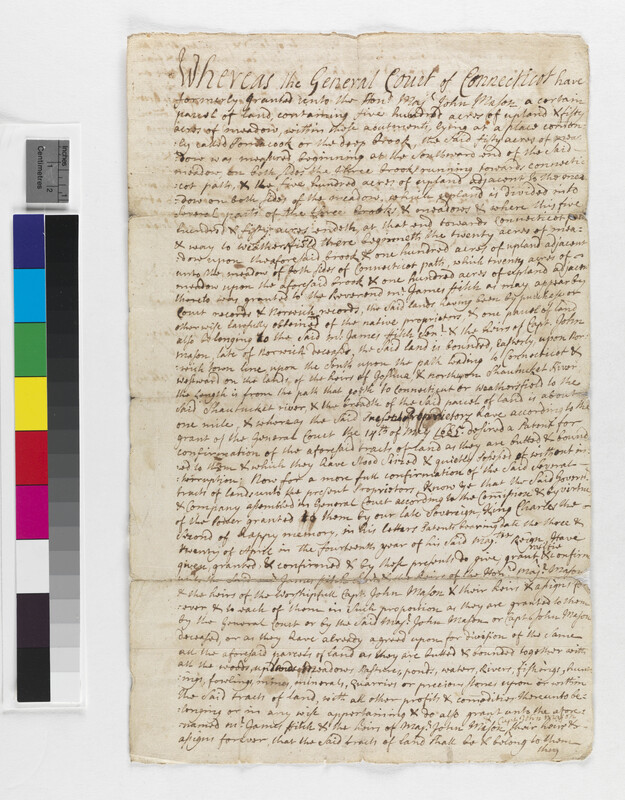 Whereas the General Court of Connecticut have
formerly granted unto the Hon:d Maj:r John Mason a certain
parcel of land, containing five hundred acres of upland & fifty
acres of meadow, within these abutments, lying at a place comon
ly called Pomecook or the deep brook, the said fifty acres of mea
dow was measured beginning at the Southward end of the said
meadow on both sides the three brook running towards connecti
cot path, & the five hundred acres of upland adjacent to the mea
dow on both sides of the meadow, which upland is divided into
severall parts of the three brooks & meadows & where this five
hundred & fifty acres endeth, at that end towards Connecticot path
& way to weathersfield there beginneth the twenty acres of mea-
dow upon the aforesaid brook & one hundred acres of upland adjacent
unto the meadow of both sides of Connecticot path, which twenty acres of
meadow upon the aforesaid brook & one hundred acres of upland adjacent
thereto was granted to the Reverend mr James fitch as may appear by
Court records & Norwich records, the said lands having been by purchase or
otherwise lawfully obtained of the native proprietors & one parcel of land
also belonging to the said mr James fitch Senr & the heirs of Capt John
Mason, late of Norwich deceased, the said land is bounded, Easterly, upon Nor-
wich town line upon the South upon the path leading to Connecticot &
westward on the lands, of the heirs of Joshua & northerly on Shautucket River
the length is from the path that goeth to Connecticot or weathersfield to the
said Shautucket river, & the breadth of the said parcel of land is about
one mile, & whereas the said Proprietory have according to the
grant of the General Court the 14th of May 1685 desired a Patent for
confirmation of the aforesaid tracts of land as they are butted & bound-
ed to them & which they have stood seized & quietly possessed of without in-
terruption: Now for a more full confirmation of the said severall
tracts of lands unto the present Proprietors, Know ye that the said Govern:r
& Company assembled in General Court according to the Commission & by virtue
of the Power granted to them by our late Sovereign King Charles the
Second of happy memory, in his letters Patents bearing date the three &
twenty of April in the fourteenth year of his said Maj:ties Reign, Have
given granted & confirmed & by these presents do give grant & confirm
unto the said James fitch & the heirs of the Hon:d Maj:r Mason
& the heirs of the Worshipfull Capt: John Mason & their heirs & assigns for
ever & to each of them in such proportion as they are granted to them
by the General Court or by the said Maj:r John Mason or Capt: John Mason
deceased or as they have already agreed upon for division of the same
all the aforesaid parcels of land as they are butted & bounded together with
all the woods, uplands, meadows, Pastures, ponds, waters, Rivers, fishings, hunt-
ings, fowlings, mines, minerals, Quarries or precious stones upon or within
the said tracts of land, with all other profits & comodities thereunto be-
longing or in any wise appertaining & do also grant unto the afore-
named mr James fitch & the heirs of Maj:r John Mason, their heirs &
assigns forever, that the said tracts of land shall be & belong to them
they